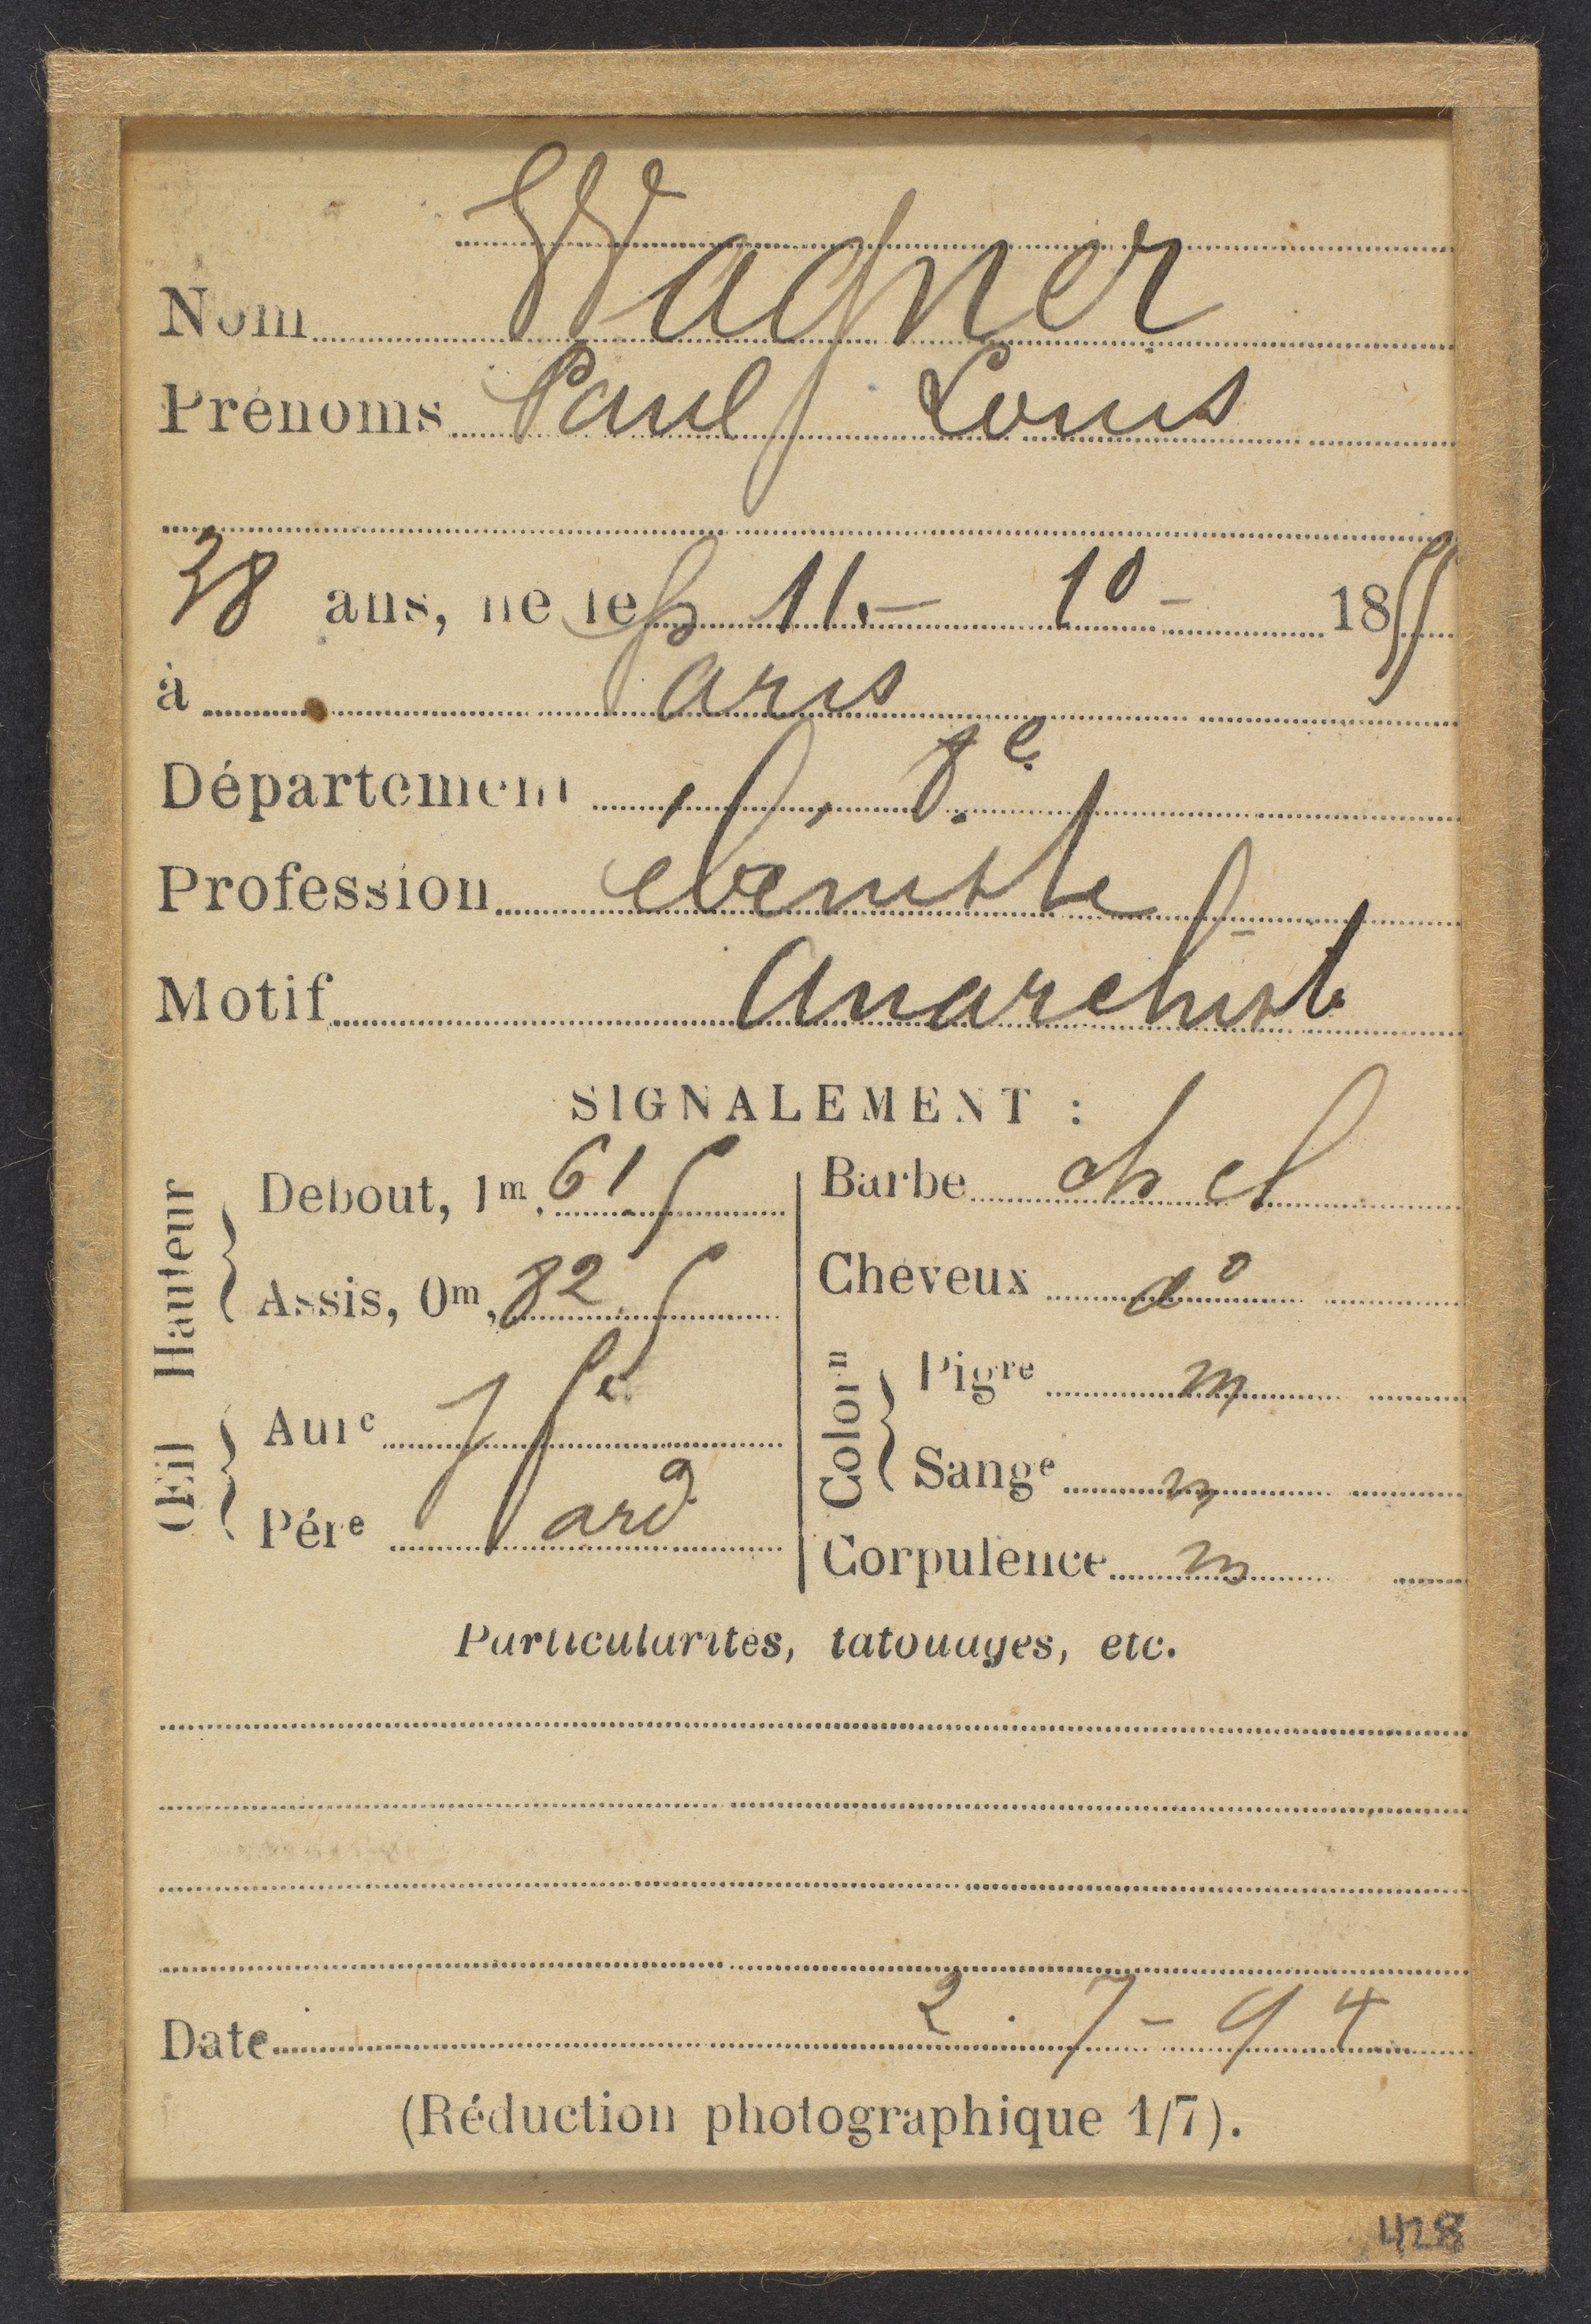 Nom Wagner
Prénoms Paul Louis
38 ans, né le 11 - 10 - 1855
à Paris
Département , 8e
Profession ebeniste
Motif Anarchiste
SIGNALEMENT :
Hauteur
Debout, 1m, 61.5
Assis, 0m, 82.5
Œil
Aure J
Pére ard
Barbe ch cl
Cheveux do
Colorn
Pigre m
Sange m
Corpulence m
Particularités, tatouages, etc.
Date 2 . 7 - 94
(Réduction photographique 1/7).
428